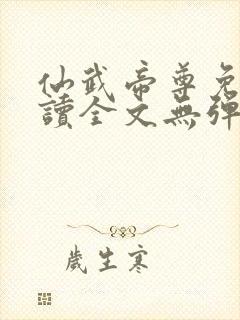 仙武帝尊免
讀全文無彈
歲生寒